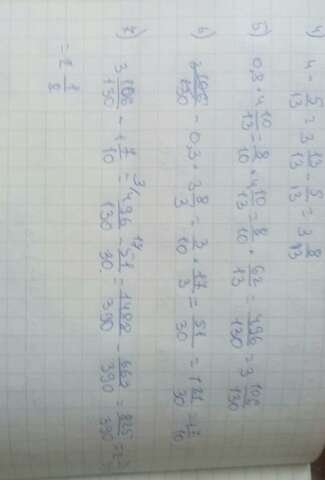 4) 4 - 5/13 = 3 13/13 - 5/13 = 3 8/13
5) 0,8 · 4 10/13 = 8/10 · 4 10/13 = 8/10 · 62/13 = 496/130 = 3 106/130
6) - 0,3 · 3 = 3/10 · 17/3 = 51/30 = 1 21/30 = 1 7/10
7) 3 106/130 - 1 7/10 = 496/130 - 51/30 = 1488/390 - 663/390 = 825/390 = 2